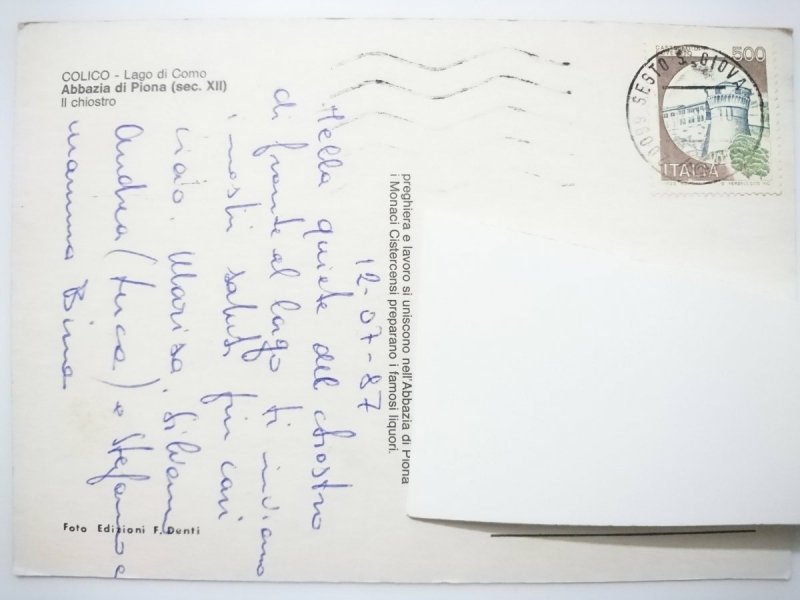 COLICO - Lago di Como
Abbazia di Piona (sec. XII)
Il chiostro
500
SESTO S. GIOVA
ITALIA
preghiera e lavoro si uniscono nell'Abbazia di Piona
i Monaci Cistercensi preparano i famosi liquori.
12-07-87
Nella quiete del chiostro
di fronte al lago ti inviamo
i nostri saluti più cari
ciao. Marisa, Silvano
Andrea (Luca) e Stefano e
mamma
Foto Edizioni F. Denti